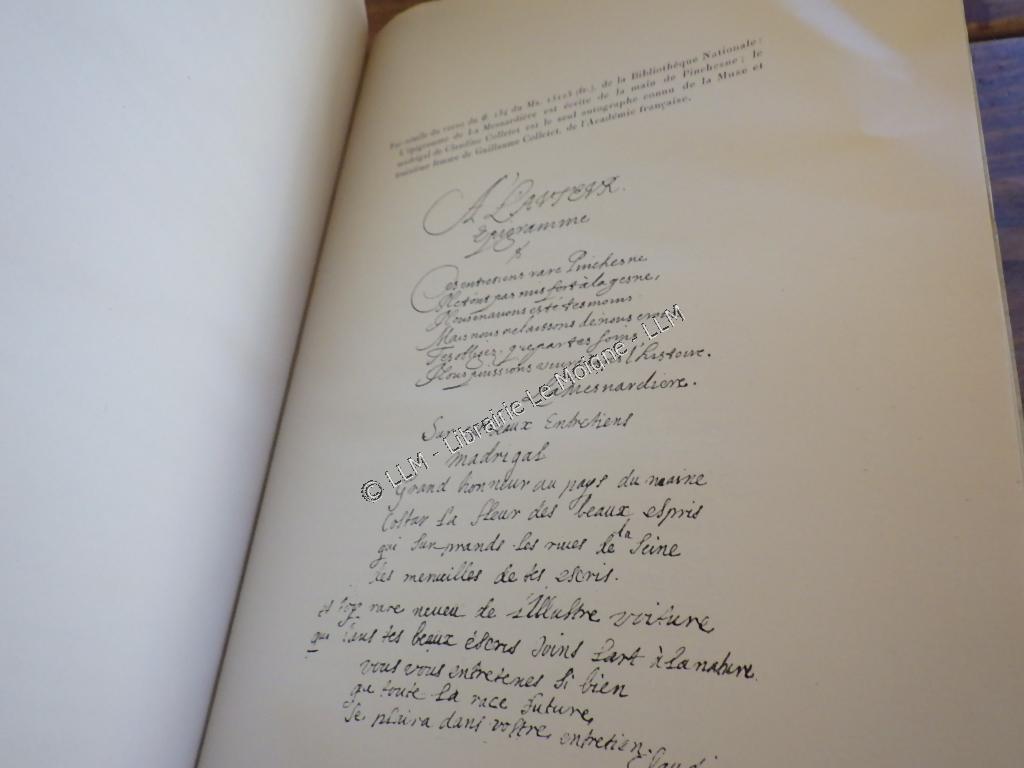 Fac-similé du verso du f° 134 du Ms. 15125 (fr.), de la Bibliothèque Nationale :
L'épigramme de La Mesnardière est écrite de la main de Pinchesne ; le
madrigal de Claudine Colletet est le seul autographe connu de la Muse et
troisième femme de Guillaume Colletet, de l'Académie française.
A L'AVTEVR.
Epigramme
Ces entretiens rare Pinchesne
Mettont par nus fort à la gesne,
Nous en auons esté tesmoins
Mais nous ne laissons de nous
Tes obliger, que par tes soins
Nous puissions l'histoire.
la Mesnardiere.
Sur Beaux Entretiens
madrigal
Grand honneur au pays du maine
Costar la fleur des beaux espris
qui surprands les riues de la Seine
des merueilles de tes escris.
et toy rare neueu de l'Illustre voiture
qui dans tes beaux escris Joins l'art à la nature
vous vous entretenes si bien
que toute la race future,
se plaira dans vostre entretien.
Claudi
© LLM - Librairie Le Moigne, LLM